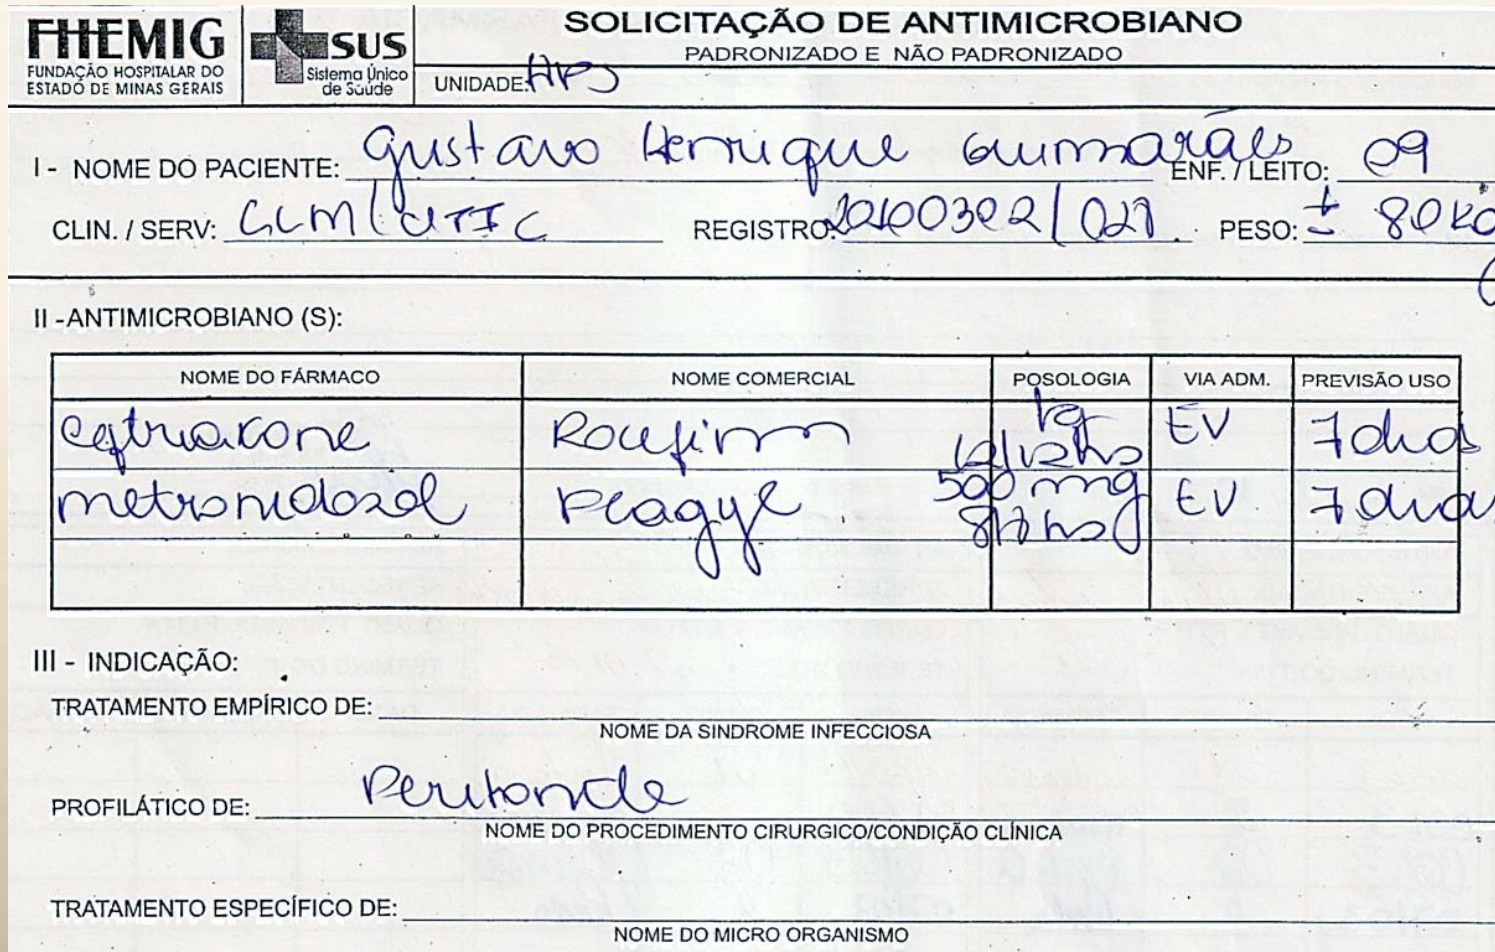 FHEMIG
FUNDAÇÃO HOSPITALAR DO
ESTADO DE MINAS GERAIS
SUS
Sistema Único
de Saúde
SOLICITAÇÃO DE ANTIMICROBIANO
PADRONIZADO E NÃO PADRONIZADO
UNIDADE: HPS
I - NOME DO PACIENTE: Gustavo Henrique Guimarães ENF. / LEITO: 09
CLIN. / SERV: REGISTRO: PESO: ± 80 kg
II -ANTIMICROBIANO (S):
NOME DO FÁRMACO NOME COMERCIAL POSOLOGIA VIA ADM. PREVISÃO USO
Ceftriaxone Rocefin 1g 12/12hs EV 7 dias
metronidazol Flagyl 500 mg 8/8 hs EV 7 dias
III - INDICAÇÃO:
TRATAMENTO EMPÍRICO DE:
NOME DA SINDROME INFECCIOSA
PROFILÁTICO DE: Peritonite
NOME DO PROCEDIMENTO CIRURGICO/CONDIÇÃO CLÍNICA
TRATAMENTO ESPECÍFICO DE:
NOME DO MICRO ORGANISMO